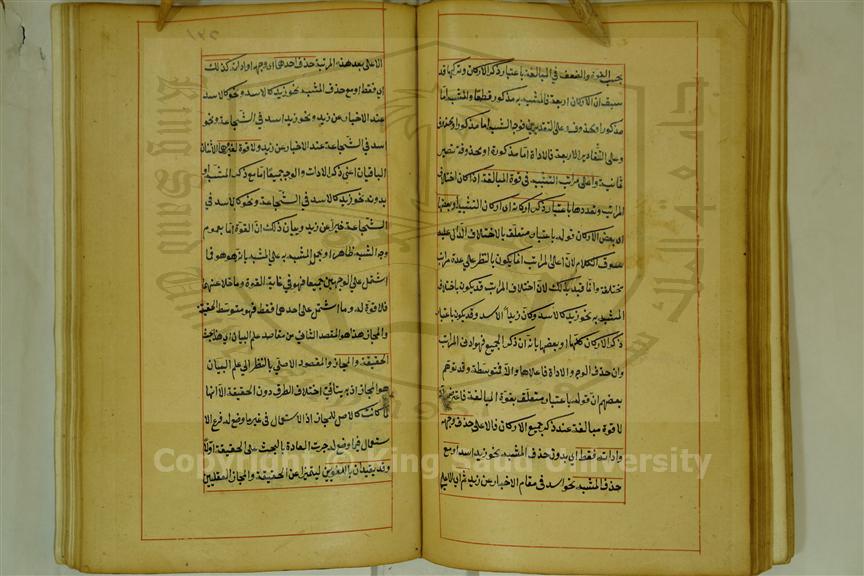 بحسب القوة والضعف في المبالغة باعتبار ذكر الاركان وتركها قد
سبق ان الاركان اربعة فالمشبه به مذكور قطعا والمشبه اما
مذكورا ومحذوف وعلى التقديرين فوجه الشبه اما مذكور او محذوف
وعلى التقادير الاربعة فالاداة اما مذكورة او محذوفة تصير
ثمانية واعلى مراتب التشبيه في قوة المبالغة اذا كان اختلاف
المراتب وتعددها باعتبار ذكر اركانه اي اركان التشبيه او بعضها
اي بعض الاركان فقوله باعتبار متعلق بالاختلاف الدال عليه
سوق الكلام لان اعلى المراتب انما يكون بالنظر على عدة مراتب
مختلفة وانما قيد بذلك لان اختلاف المراتب قد يكون باختلاف
المشبه به نحو زيد كالاسد وكان زيدا الاسد وقد يكون باعتبار
ذكر الاركان كلها او بعضها بانه ان ذكر الجميع فهو ادنى المراتب
وان حذف الوجه والاداة فاعلاها والا فمتوسطة وقد توهم
بعضهم ان قوله باعتبار متعلق بقوة المبالغة فاعترض بانه
لا قوة مبالغة عند ذكر جميع الاركان فالاعلى حذف وجهه
واداته فقط اي بدون حذف المشبه نحو زيد اسد او مع
حذف المشبه نحو اسد في مقام الاخبار عن زيد ثم اي الاعلى
١٣٥
الاعلى بعد هذه المرتبة حذف احدهما اي وجهه او اداته كذلك
اي فقط او مع حذف المشبه نحو زيد كالاسد ونحو كالاسد
عند الاخبار عن زيد ونحو زيد اسد في الشجاعة ونحو
اسد في الشجاعة عند الاخبار عن زيد ولا قوة لغيرها الاثنان
الباقيان اعني ذكر الادات والوجه جميعا اما مع ذكر المشبه او
بدونه نحو زيد كالاسد في الشجاعة ونحو كالاسد في
الشجاعة خبرا عن زيد وبيان ذلك ان القوة اما بعموم
وجه الشبه ظاهرا او بحمل المشبه به على المشبه بانه هو هو فما
اشتمل على الوجهين جميعا فهو في غاية القوة وما خلا عنهما
فلا قوة له وما اشتمل على احدهما فقط فهو متوسط الحقيقة
والمجاز هذا هو المقصد الثاني من مقاصد علم البيان اي هذا بحث
الحقيقة والمجاز والمقصود الاصلي بالنظر الى علم البيان
هو المجاز اذ به يتاتي اختلاف الطرق دون الحقيقة الا انها
لما كانت كالاصل للمجاز اذ الاستعمال في غير ما وضع له فرع الا
ستعمال فيما وضع له جرت العادة بالبحث على الحقيقة اولا
وقد يقيدان باللغويين ليتميزا عن الحقيقة والمجاز العقليين